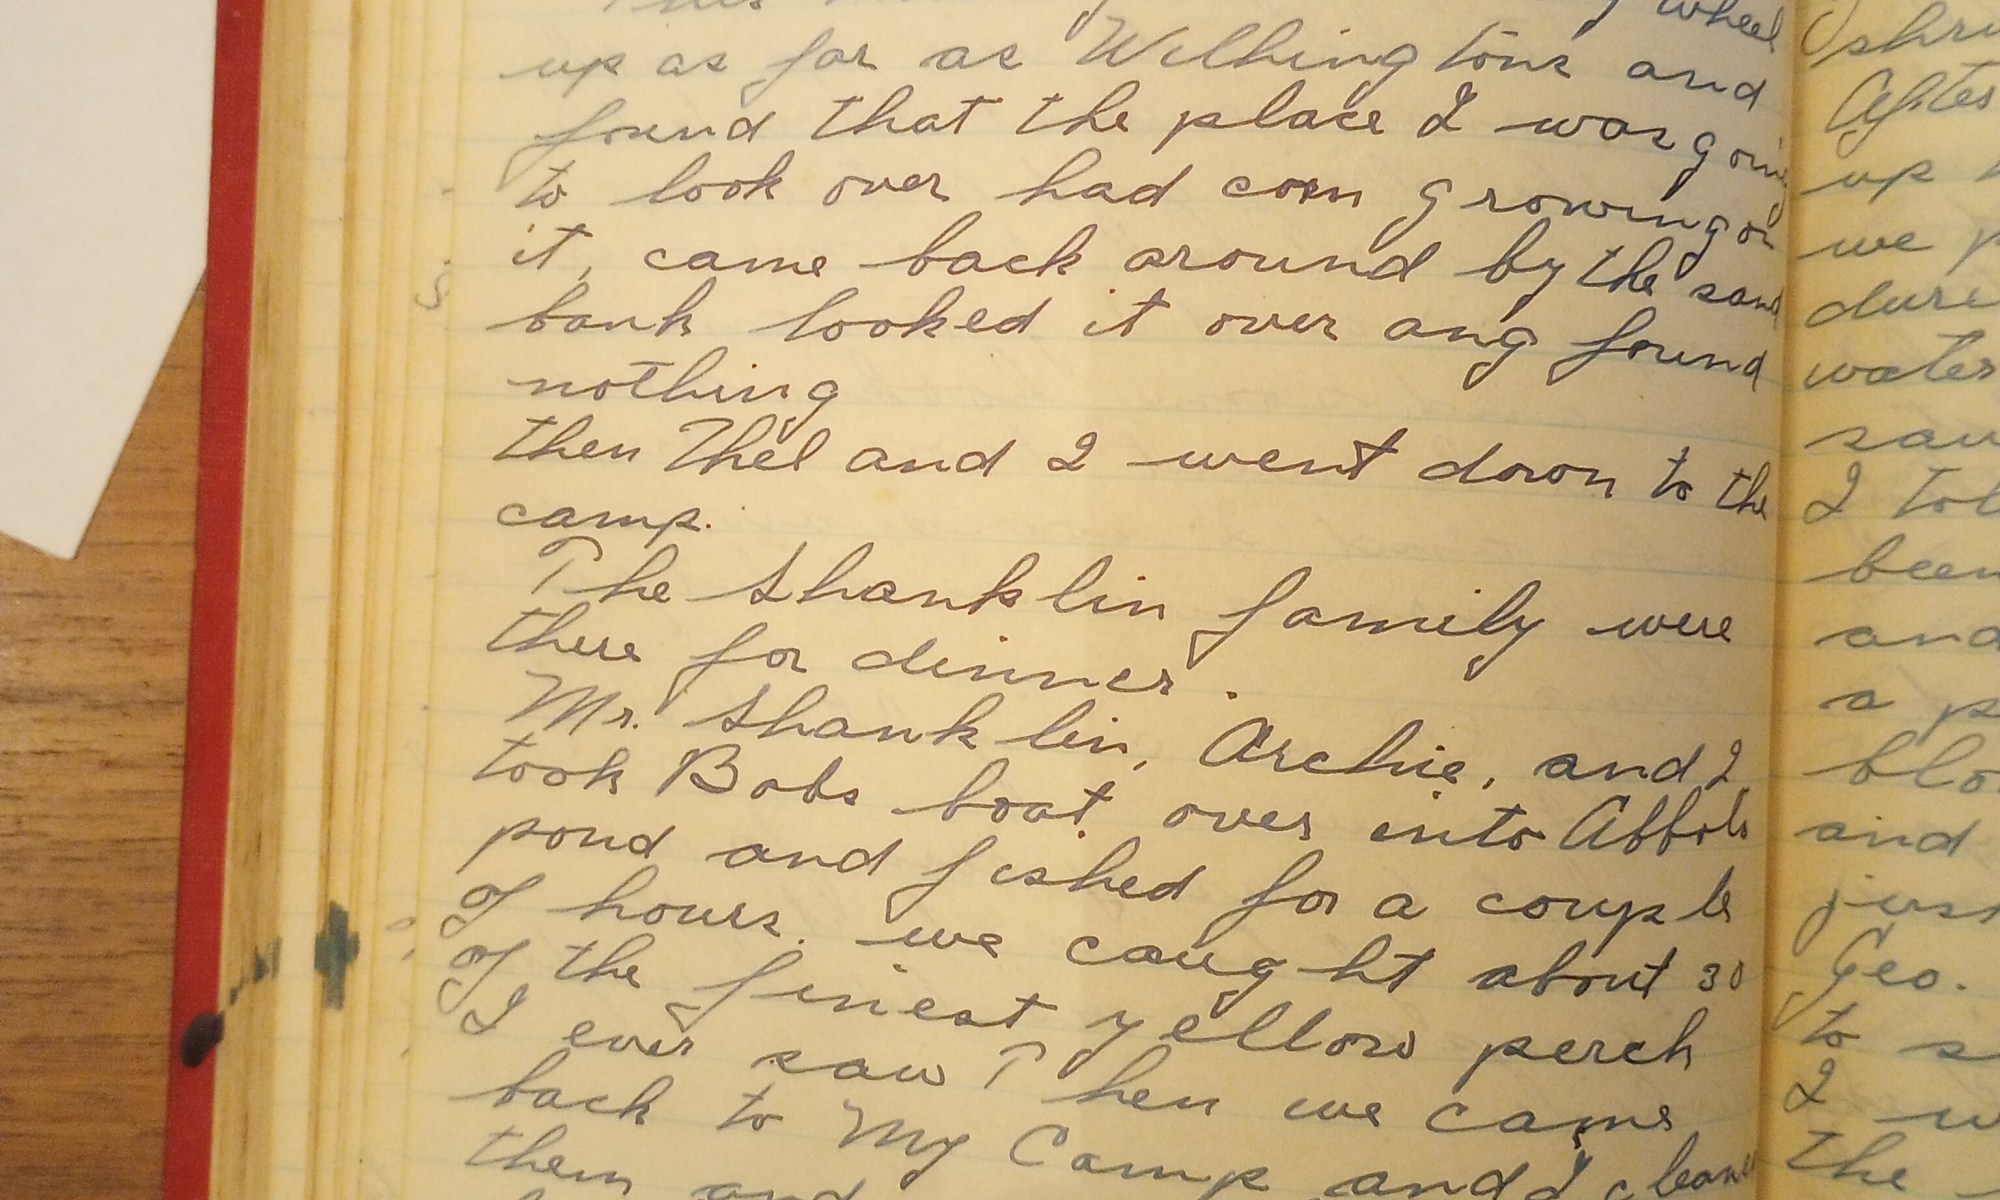 wheel
up as far as Wellingtons and
found that the place I was going
to look over had corn growing on
it, came back around by the sand
bank looked it over ang found
nothing
then Thel and I went down to the
camp.
The Shanklin family were
there for dinner.
Mr. Shanklin, Archie, and I
took Bobs boat over into Abbots
pond and fished for a couple
of hours. we caught about 30
of the finest yellow perch
I ever saw Then we came
back to My Camp and I cleaned
them and
shru
After
up
we p
dure
water
saw
I tol
been
and
a p
blo
and
just
Geo.
to s
I w
the